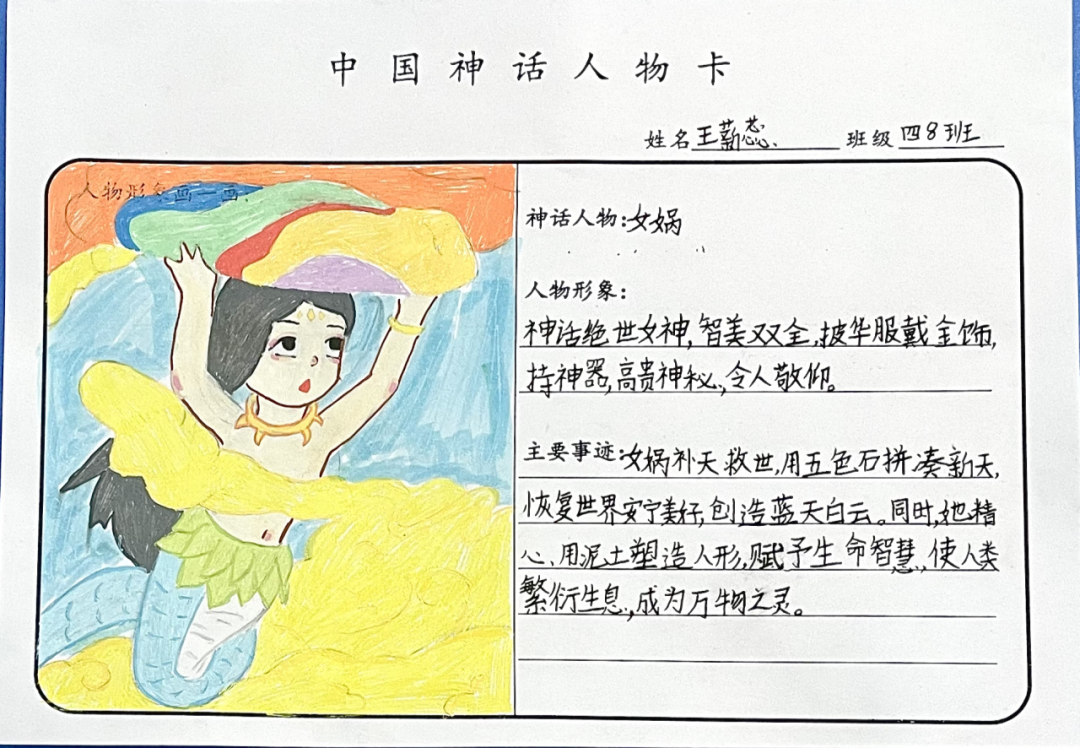 中国神话人物卡
姓名王薪蕊 班级四8班
人物形象画一画
神话人物:女娲
人物形象:
神话绝世女神,智美双全,披华服戴金饰,
持神器,高贵神秘,令人敬仰。
主要事迹:女娲补天救世,用五色石拼凑新天,
恢复世界安宁美好,创造蓝天白云。同时,她精
心用泥土塑造人形,赋予生命智慧,使人类
繁衍生息,成为万物之灵。